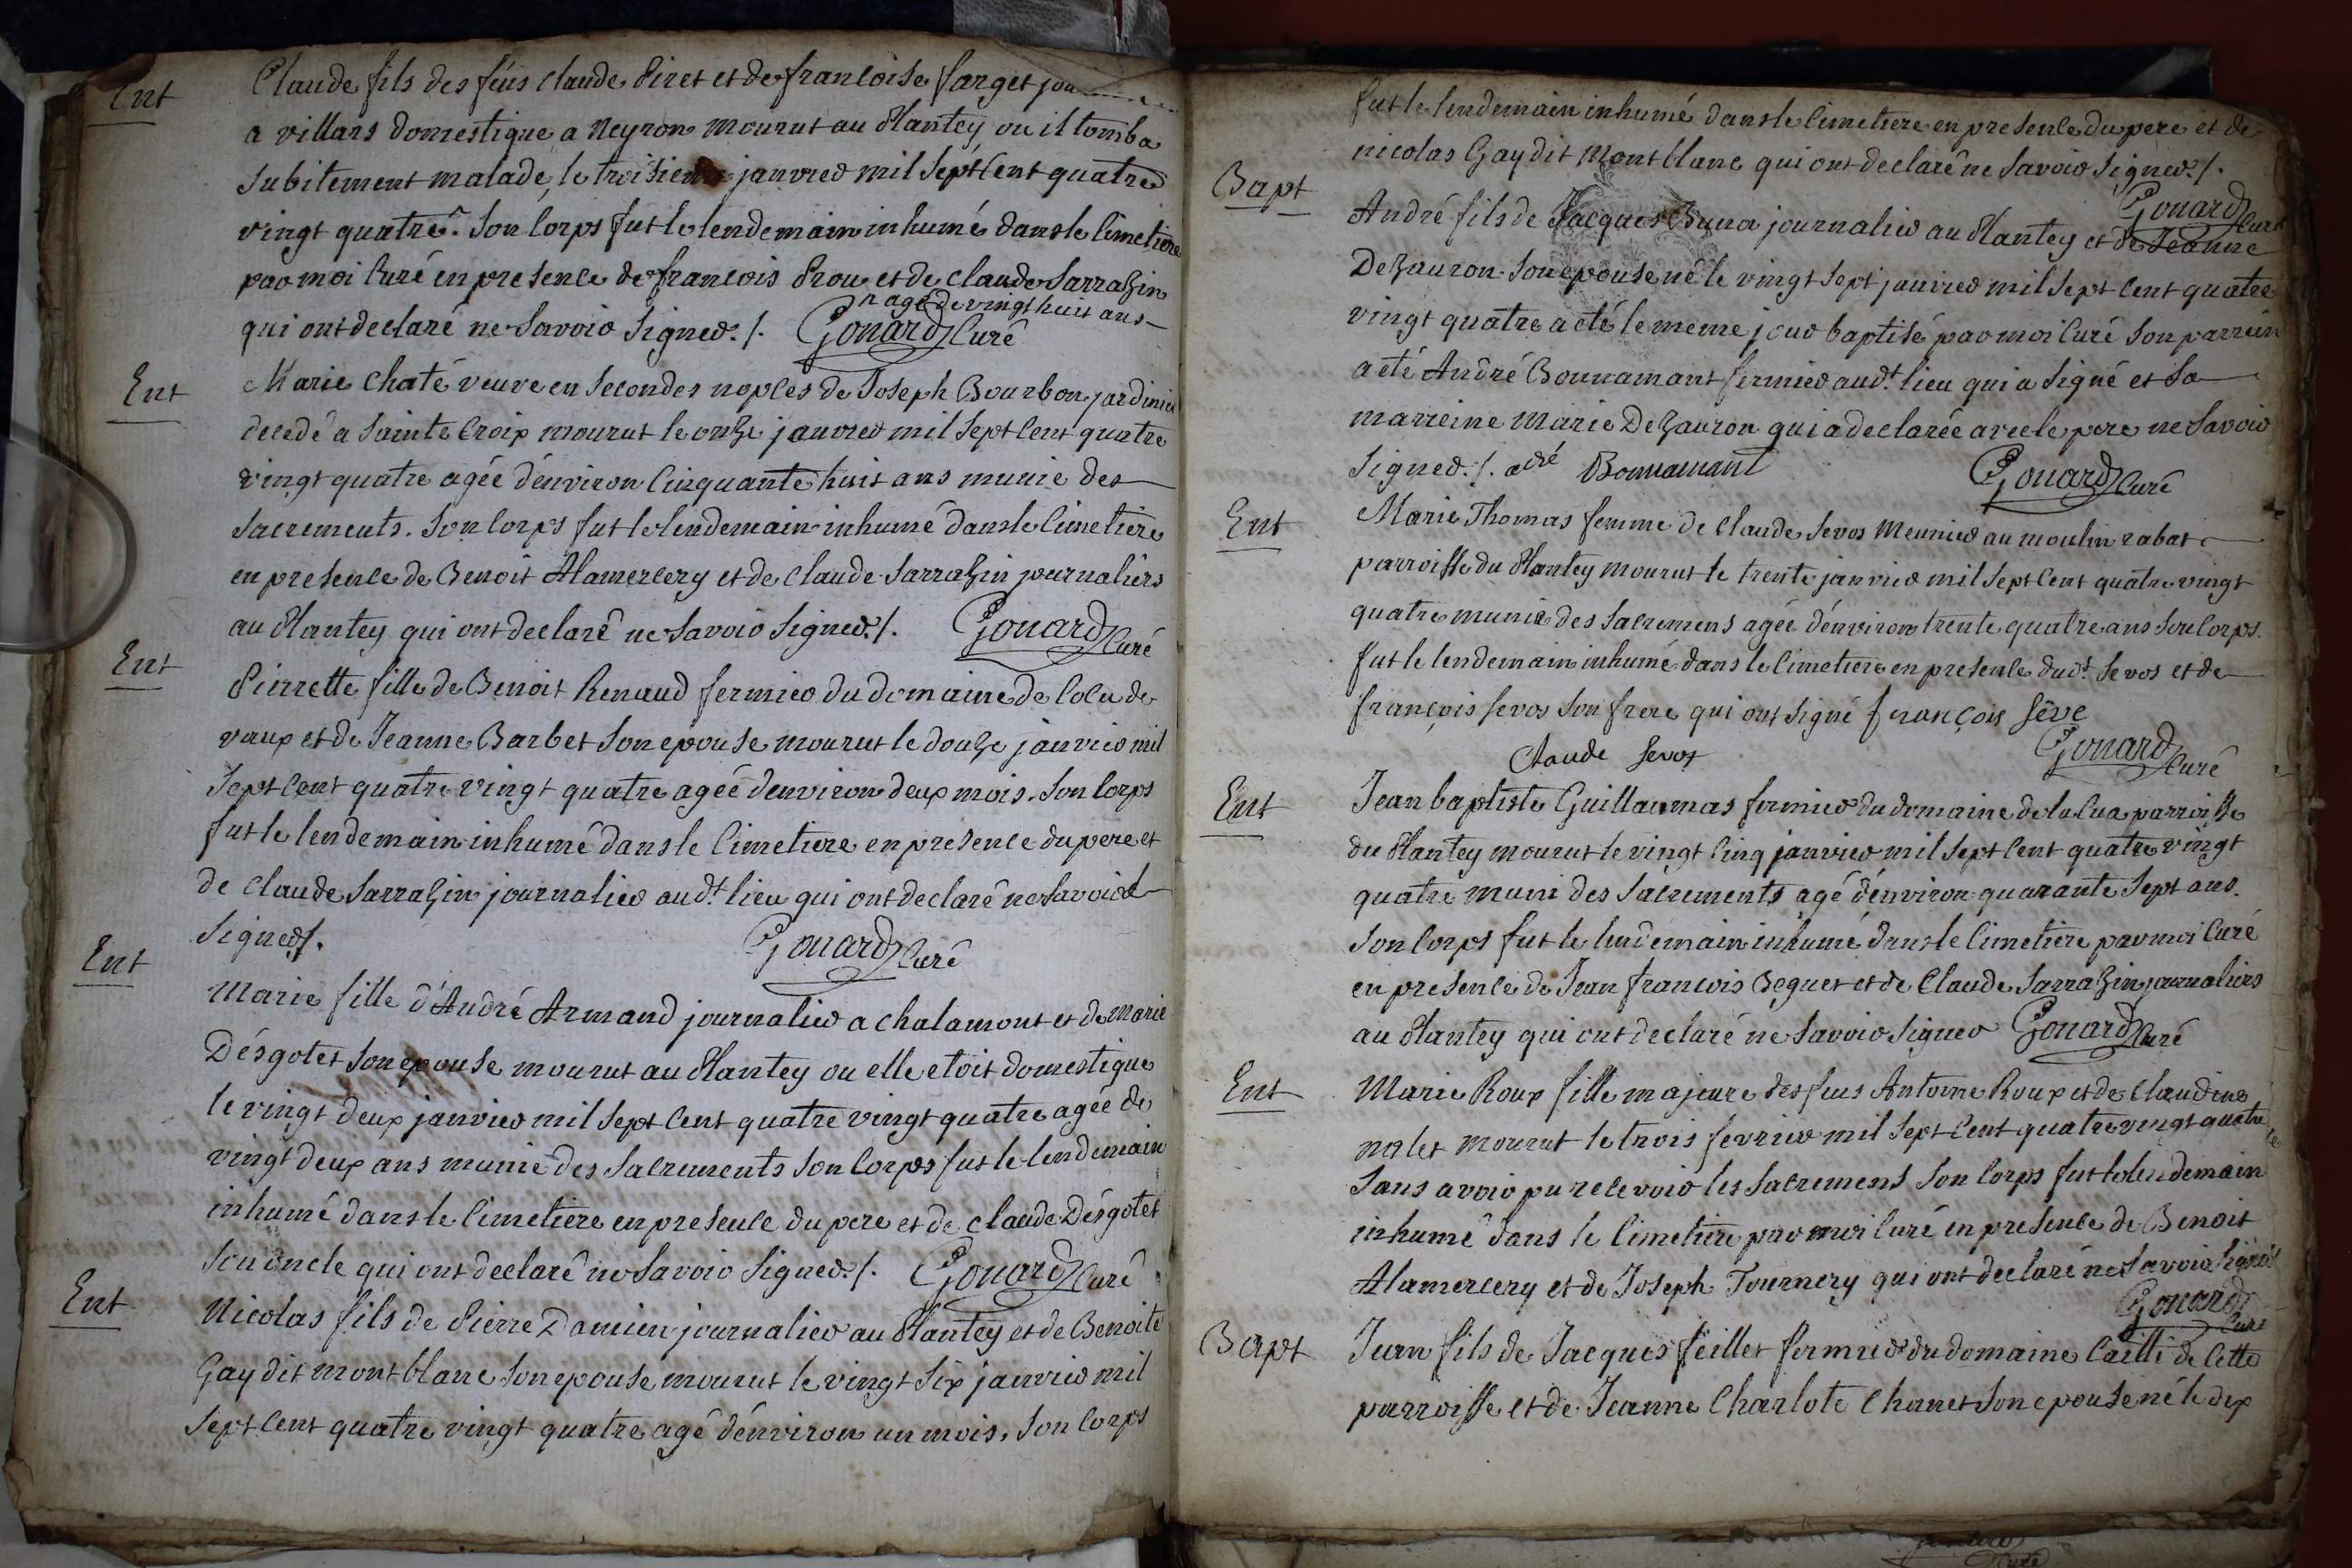 Ent
Claude fils des feüs Claude Piret et de francoise farget
a villars domestique a Neyron mourut au Plantey ou il tomba
subitement malade, le troisieme janvier mil sept cent quatre
vingt quatre. Son corps fut le lendemain inhumé dans le cimetiere
par moi Curé en presence de francois Prou et de Claude Sarrazin
agé de vingt huit ans
qui ont declaré ne savoir signer. /. Gouard Curé
Ent
Marie Chaté veuve en secondes noples de Joseph Bourbon jardinier
decedé a Sainte Croix mourut le onze janvier mil sept cent quatre
vingt quatre agée d'environ cinquante huit ans munie des
sacrements. Son corps fut le lendemain inhumé dans le cimetiere
en presence de Benoit Alamercery et de Claude Sarrazin journaliers
au Plantey qui ont declaré ne savoir signer. /. Gouard Curé
Ent
Pierrette fille de Benoit Renaud fermier du domaine de
vaux et de Jeanne Barbet son epouse mourut le douze janvier mil
sept cent quatre vingt quatre agée d'environ deux mois. Son corps
fut le lendemain inhumé dans le cimetiere en presence du pere et
de Claude Sarrazin journalier aud.t lieu qui ont declaré ne savoir
signer /. Gouard Curé
Ent
Marie fille d'André Armand journalier a chalamont et de Marie
Désgotes son epouse mourut au Plantey ou elle etoit domestique
le vingt deux janvier mil sept cent quatre vingt quatre agée de
vingt deux ans munie des Sacrements son corps fut le lendemain
inhumé dans le cimetiere en presence du pere et de Claude Désgotes
son oncle qui ont declaré ne savoir signer. /. Gouard Curé
Ent
Nicolas fils de Pierre Damien journalier au Plantey et de Benoite
Gay dit mont blanc son epouse mourut le vingt six janvier mil
sept cent quatre vingt quatre agé d'environ un mois, son corps
fut le lendemain inhumé dans le cimetiere en presence du pere et de
nicolas Gay dit Mont blanc qui ont declaré ne savoir signer. /.
Gouard Curé
Bapt
André fils de Jacques journalier au Plantey et de Jeanne
Dezauron son epouse né le vingt sept janvier mil sept cent quatre
vingt quatre a eté le meme jour baptisé par moi Curé son parrein
a eté André Bonnamant fermier aud.t lieu qui a signé et sa
marreine Marie Dezauron qui a declarée avec le pere ne savoir
signer. /. adré Bonnamant Gouard Curé
Ent
Marie Thomas femme de Claude Sevos meunier au moulin rabat
parroisse du Plantey mourut le trente janvier mil sept cent quatre vingt
quatre munie des sacremens agée d'environ trente quatre ans son corps
fut le lendemain inhumé dans le cimetiere en presence dud.t Sevos et de
françois sevos son frere qui ont signé françois sêve
Claude Sevos Gouard Curé
Ent
Jean baptiste Guillaumas fermier du domaine de la Cua parroisse
du Plantey mourut le vingt cinq janvier mil sept cent quatre vingt
quatre muni des sacrements agé d'environ quarante sept ans.
Son corps fut le lendemain inhumé dans le cimetiere par moi Curé
en presence de Jean francois Beguet et de Claude Sarrazin journaliers
au Plantey qui ont declaré ne savoir signer Gouard Curé
Ent
Marie Roux fille majeure des feus Antoine Roux et de Claudine
nalet mourut le trois fevrier mil sept cent quatre vingt quatre
sans avoir pu recevoir les sacremens son corps fut le lendemain
inhumé dans le cimetiere par moi Curé en presence de Benoit
Alamercery et de Joseph Tournery qui ont declaré ne savoir signer
Gouard Curé
Bapt
Jean fils de Jacques feillet fermier du domaine Cailli de cette
parroisse et de Jeanne Charlote Chanet son epouse né le dix